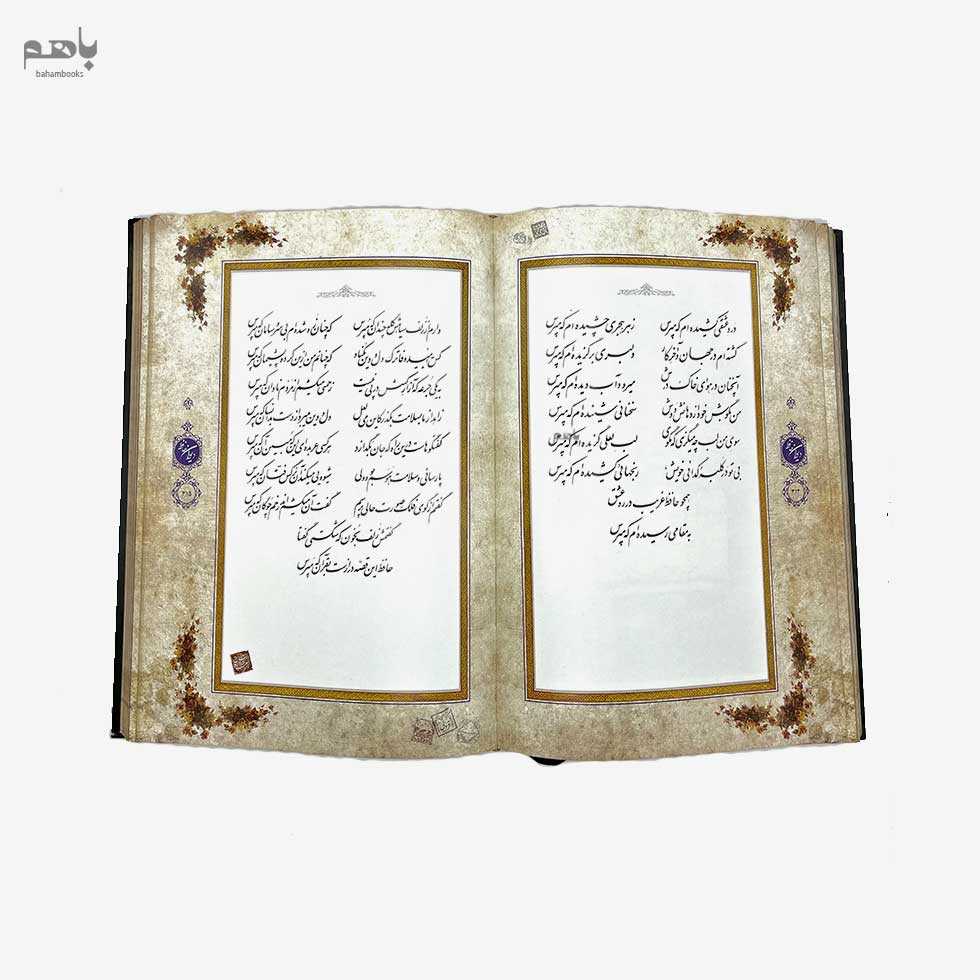 باهم
bahambooks
درد عشقی کشیده ام که مپرس زهر هجری چشیده ام که مپرس
گشته ام در جهان و آخر کار دلبری برگزیده ام که مپرس
آنچنان در هوای خاک درش میرود آب دیده ام که مپرس
من بگوش خود از دهانش دوش سخنانی شنیده ام که مپرس
سوی من لب چه میگزی که مگوی لب لعلی گزیده ام که مپرس
بی تو در کلبه گدائی خویش رنجهائی کشیده ام که مپرس
همچو حافظ غریب در ره عشق
به مقامی رسیده ام که مپرس
دارم از زلف سیاهش گله چندان که مپرس که چنان زو شده ام بی سر و سامان که مپرس
کس به امید وفا ترک دل و دین مکناد که چنانم من ازین کرده پشیمان که مپرس
بیکی جرعه که آزار کسش در پی نیست زحمتی میکشم از مردم نادان که مپرس
زاهد از ما بسلامت بگذر کاین می لعل دل و دین میبرد از دست بدانسان که مپرس
گفتگوهاست درین راه که جان بگدازد هر کسی عربده ای این که مبین آن که مپرس
پارسائی و سلامت هوسم بود ولی شیوه ای میکند آن نرگس فتان که مپرس
گفتم از گوی فلک صورت حالی پرسم گفت آن میکشم اندر خم چوگان که مپرس
گفتمش زلف بخون که شکستی گفتا
حافظ این قصه درازست بقرآن که مپرس
۳۱۵